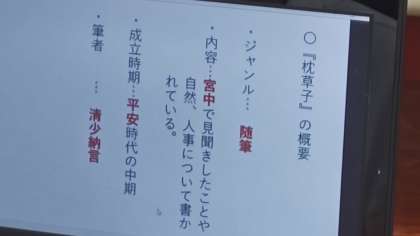 〇『枕草子』の概要
・ジャンル…　随筆
・内容…宮中で見聞きしたことや
自然、人事について書か
れている。
・成立時期…平安時代の中期
・筆者　…　清少納言